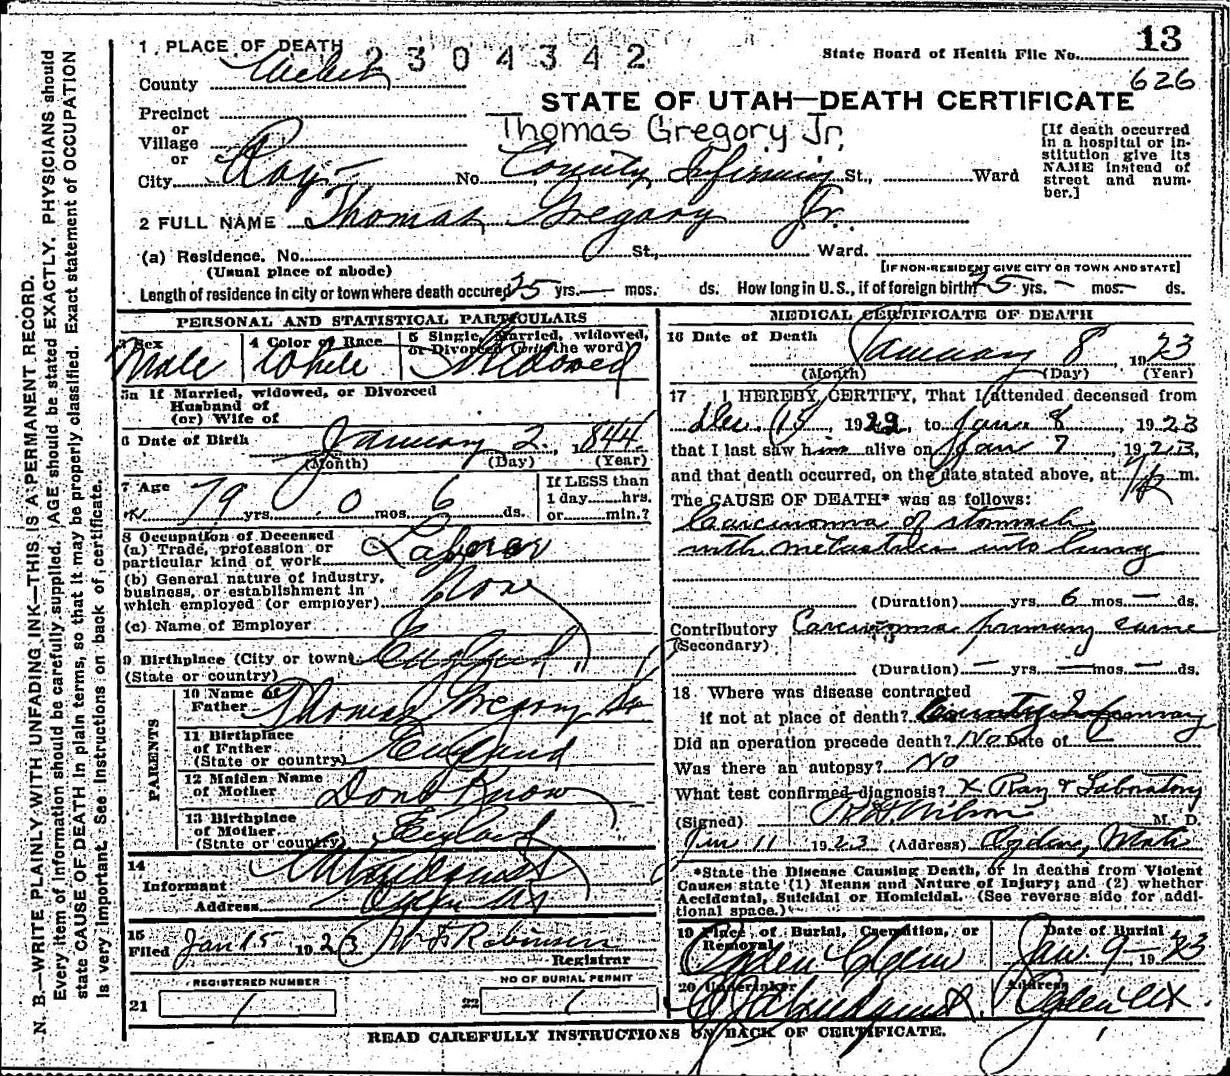 1 PLACE OF DEATH 2304342 State Board of Health File No. 13
County Weber 626
STATE OF UTAH—DEATH CERTIFICATE
Precinct
or
Village
or
Thomas Gregory Jr.
[If death occurred in a hospital or institution give its NAME instead of street and number.]
City Roy No County Infirmary St., Ward
2 FULL NAME Thomas Gregory Jr.
(a) Residence. No. St., Ward.
(Usual place of abode) [IF NON-RESIDENT GIVE CITY OR TOWN AND STATE]
Length of residence in city or town where death occured 25 yrs. — mos. ds. How long in U.S., if of foreign birth? 25 yrs. — mos — ds.
PERSONAL AND STATISTICAL PARTICULARS
3 Sex Male
4 Color of Race White
5 Single, Married, widowed, or Divorced (write the word) Widowed
5a If Married, widowed, or Divorced
Husband of
(or) Wife of
6 Date of Birth January 2, 1844
(Month) (Day) (Year)
7 Age 79 yrs. 0 mos 6 ds.
If LESS than
1 day hrs.
or min.?
8 Occupation of Deceased
(a) Trade, profession or
particular kind of work Laborer
(b) General nature of industry,
business, or establishment in
which employed (or employer) None
(c) Name of Employer
9 Birthplace (City or town) England
(State or country)
PARENTS
10 Name of
Father Thomas Gregory Sr
11 Birthplace
of Father
(State or country) England
12 Maiden Name
of Mother Dont Know
13 Birthplace
of Mother
(State or country) England
14
Informant
Address Ogden Ut
15
Filed Jan 15 1923 Robinson
Registrar
REGISTERED NUMBER
21 1
NO OF BURIAL PERMIT
22 1
MEDICAL CERTIFICATE OF DEATH
16 Date of Death January 8 1923
(Month) (Day) (Year)
17 I HEREBY CERTIFY, That I attended deceased from
Dec. 15, 1922, to Jan. 8, 1923
that I last saw him alive on Jan 7, 1923,
and that death occurred, on the date stated above, at m.
The CAUSE OF DEATH* was as follows:
Carcinoma of stomach
with metastases into lung
(Duration) yrs 6 mos — ds.
Contributory Carcinoma primary same
(Secondary)
(Duration) — yrs. — mos. — ds.
18 Where was disease contracted
if not at place of death? County Infirmary
Did an operation precede death? No Date of
Was there an autopsy? No
What test confirmed diagnosis? X Ray & Laboratory
(Signed) Wilson M. D.
Jan 11 1923 (Address) Ogden, Utah
*State the Disease Causing Death, or in deaths from Violent
Causes state (1) Means and Nature of Injury; and (2) whether
Accidental, Suicidal or Homicidal. (See reverse side for addi-
tional space.)
19 Place of Burial, Cremation, or
Removal Ogden Cem
Date of Burial
Jan. 9— 1923
20 Undertaker
Address
Ogden Ut.
READ CAREFULLY INSTRUCTIONS ON BACK OF CERTIFICATE.
N. B.—WRITE PLAINLY WITH UNFADING INK—THIS IS A PERMANENT RECORD.
Every item of Information should be carefully supplied. AGE should be stated EXACTLY. PHYSICIANS should
state CAUSE OF DEATH in plain terms, so that it may be properly classified. Exact statement of OCCUPATION
is very important. See instructions on back of certificate.